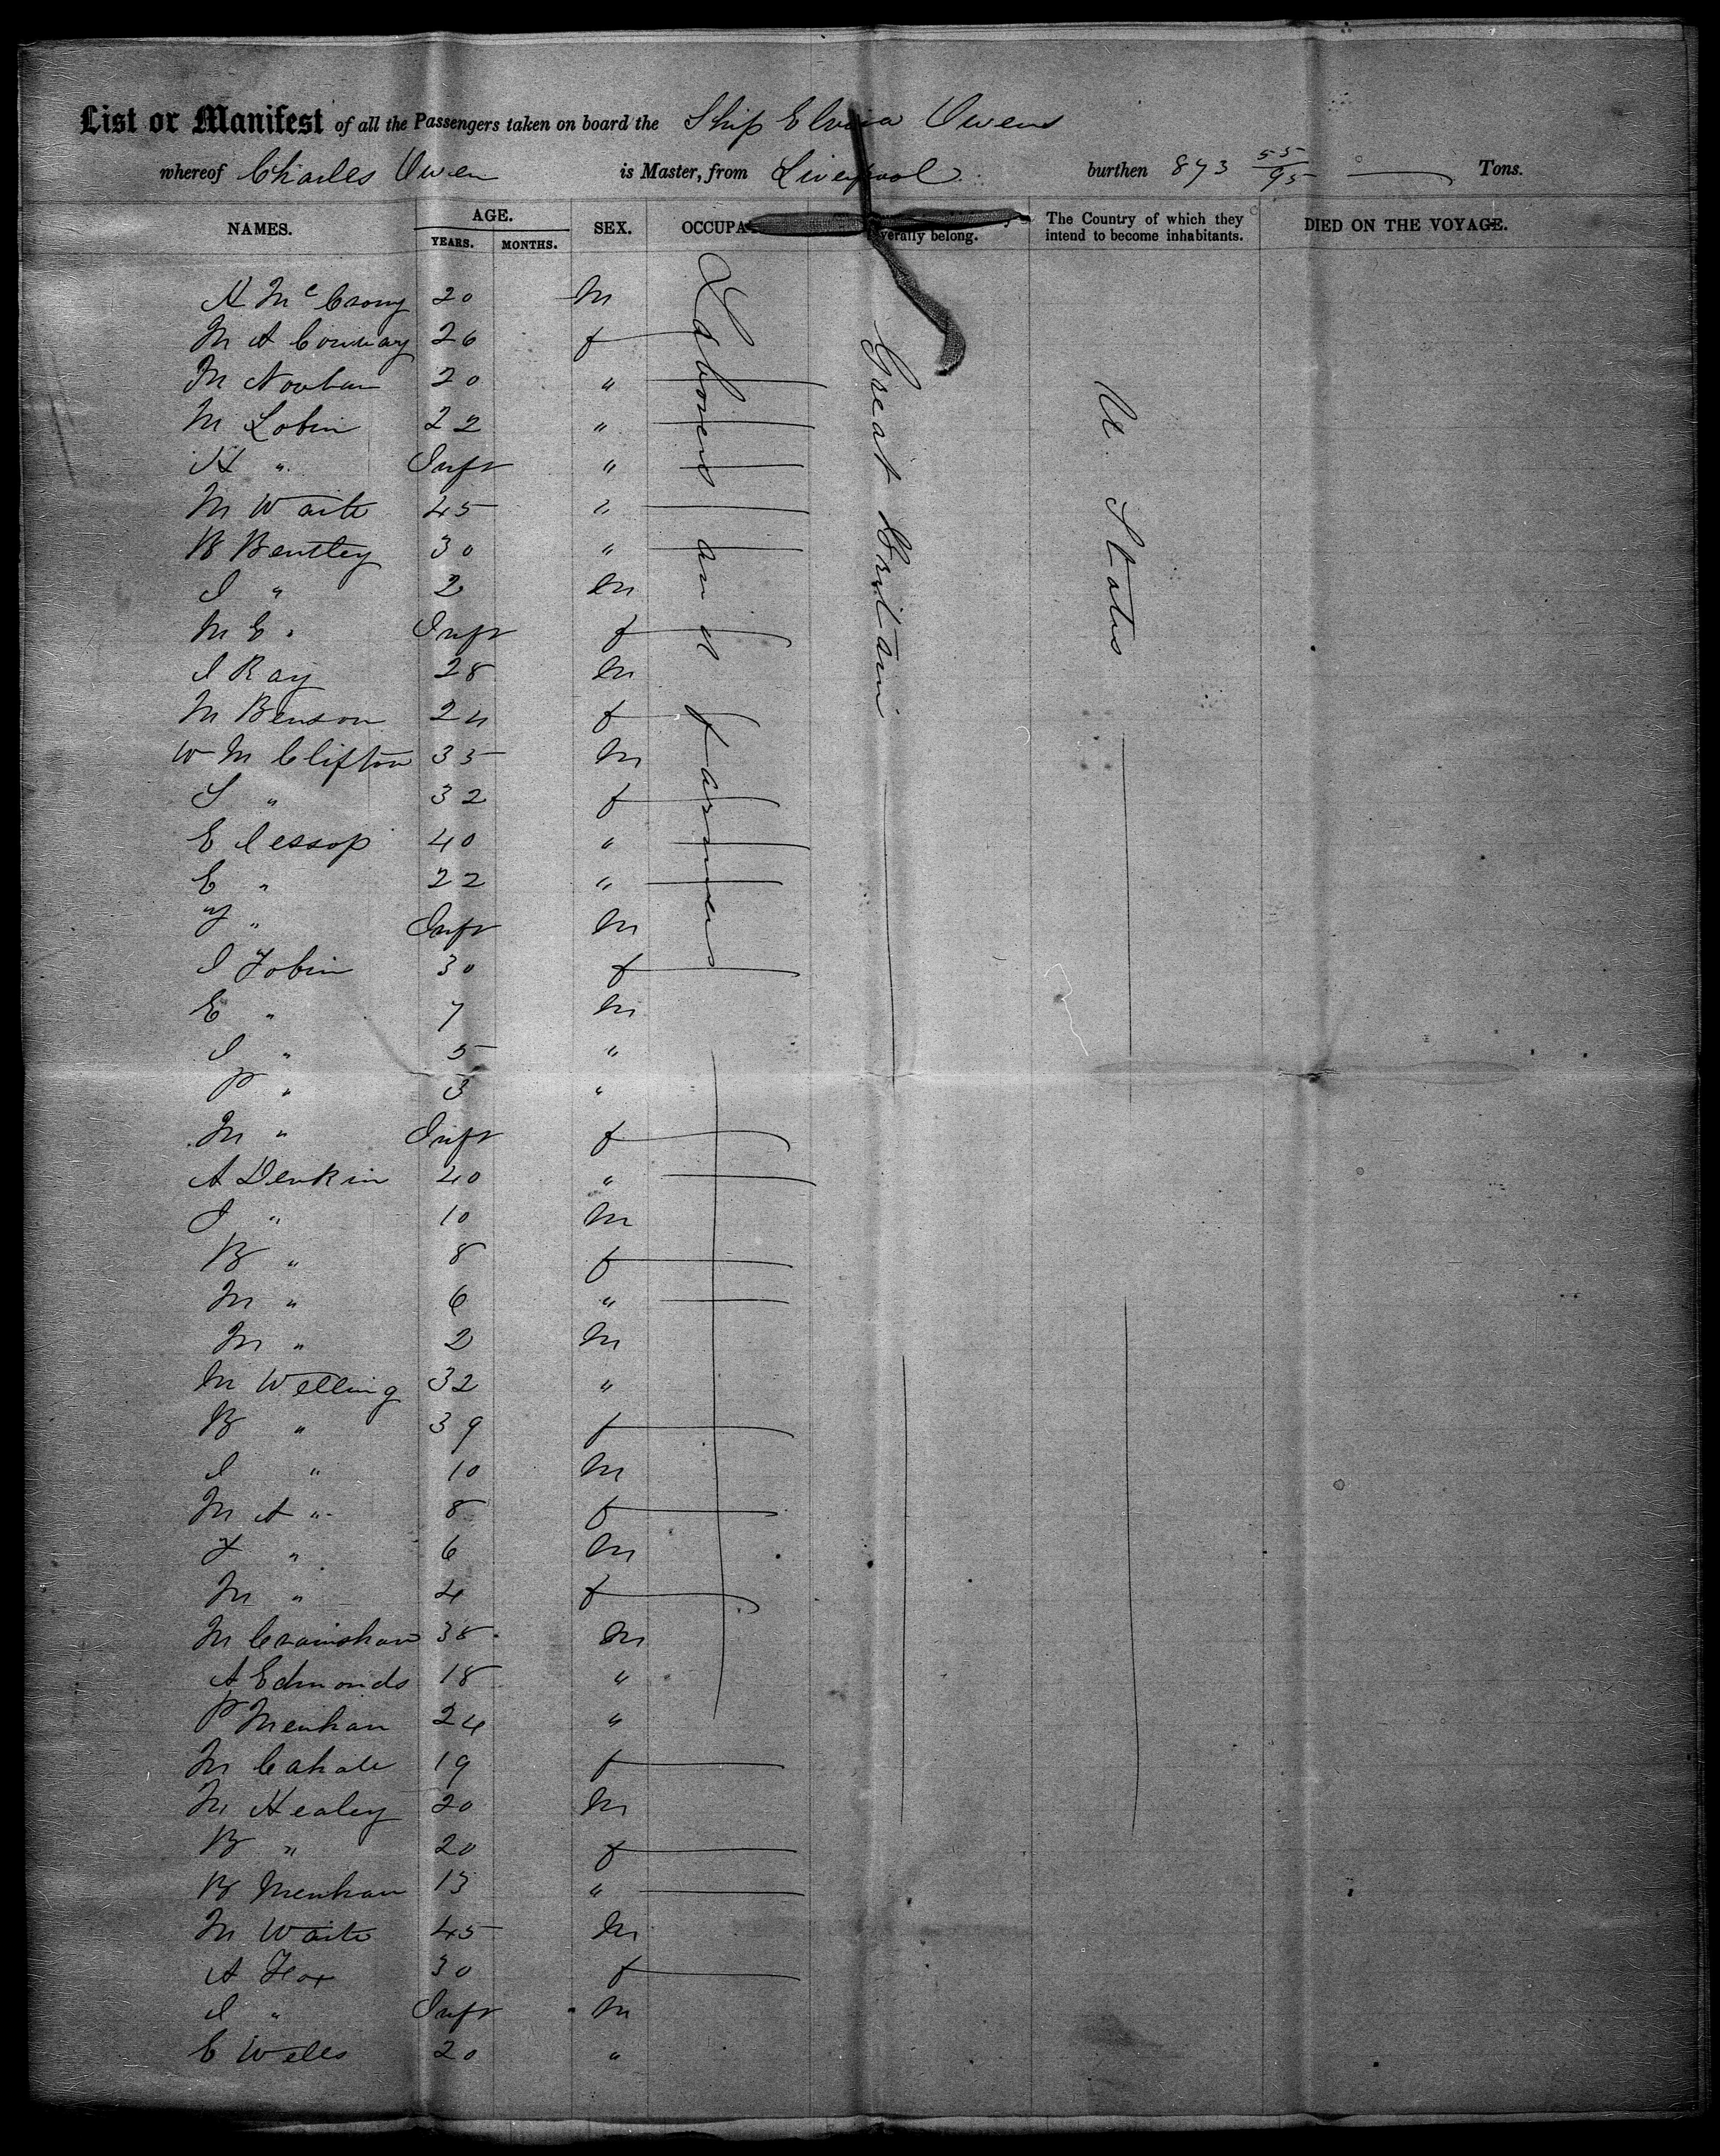 List or Manifest of all the Passengers taken on board the Ship Elvira Owens
whereof Charles Owen is Master, from Liverpool burthen 873 55/95 Tons.
NAMES. AGE. YEARS. MONTHS. SEX. OCCUPA verally belong. The Country of which they intend to become inhabitants. DIED ON THE VOYAGE.
Labourers and farmers
Great Britain
U. States
20 m
M A 26 f
M 20 "
M Lobin 22 "
H " Inft "
M Waite 45 "
B Bentley 30 "
J " 2 m
M E " Inft f
J Ray 28 m
M Benson 24 f
W M Clifton 35 m
S " 32 f
E Jessop 40 "
E " 22 "
" Inft m
J Tobin 30 f
E " 7 m
J " 5 "
P " 3 "
M " Inft f
A Denkin 40 "
J " 10 m
B " 8 f
M " 6 "
M " 2 m
M Welling 32 "
B " 39 f
J " 10 m
M A " 8 f
" 6 m
M " 4 f
M 38 m
A Edmonds 18 "
P Menhan 24 "
M 19 f
M Healey 20 m
B " 20 f
B Menhan 13 "
M Waite 45 m
A Fox 30 f
J " Inft m
E Wells 20 "